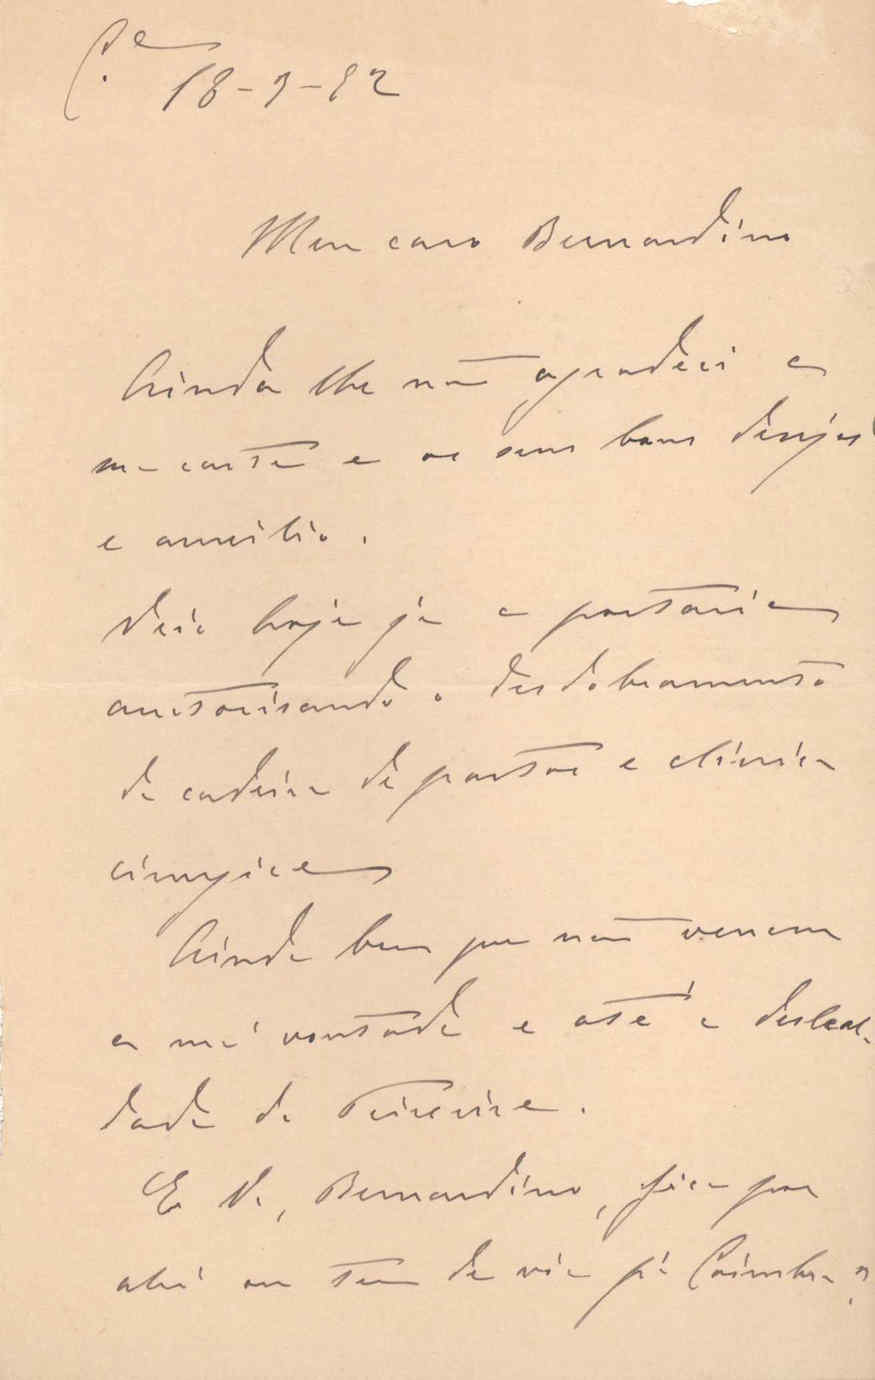 C.e 18-9-92
Meu caro Bernardino
Ainda lhe não agradeci a
sua carta e os seus bons desejos
e auxilio.
Veio hoje já a portaria
auctorisando o desdobramento
da cadeira de partos e clinica
cirurgica
Ainda bem que não venceu
a má vontade e até a desleal-
dade do Teixeira.
E V., Bernardino, fica por
ahi ou tem de vir p.a Coimbra?